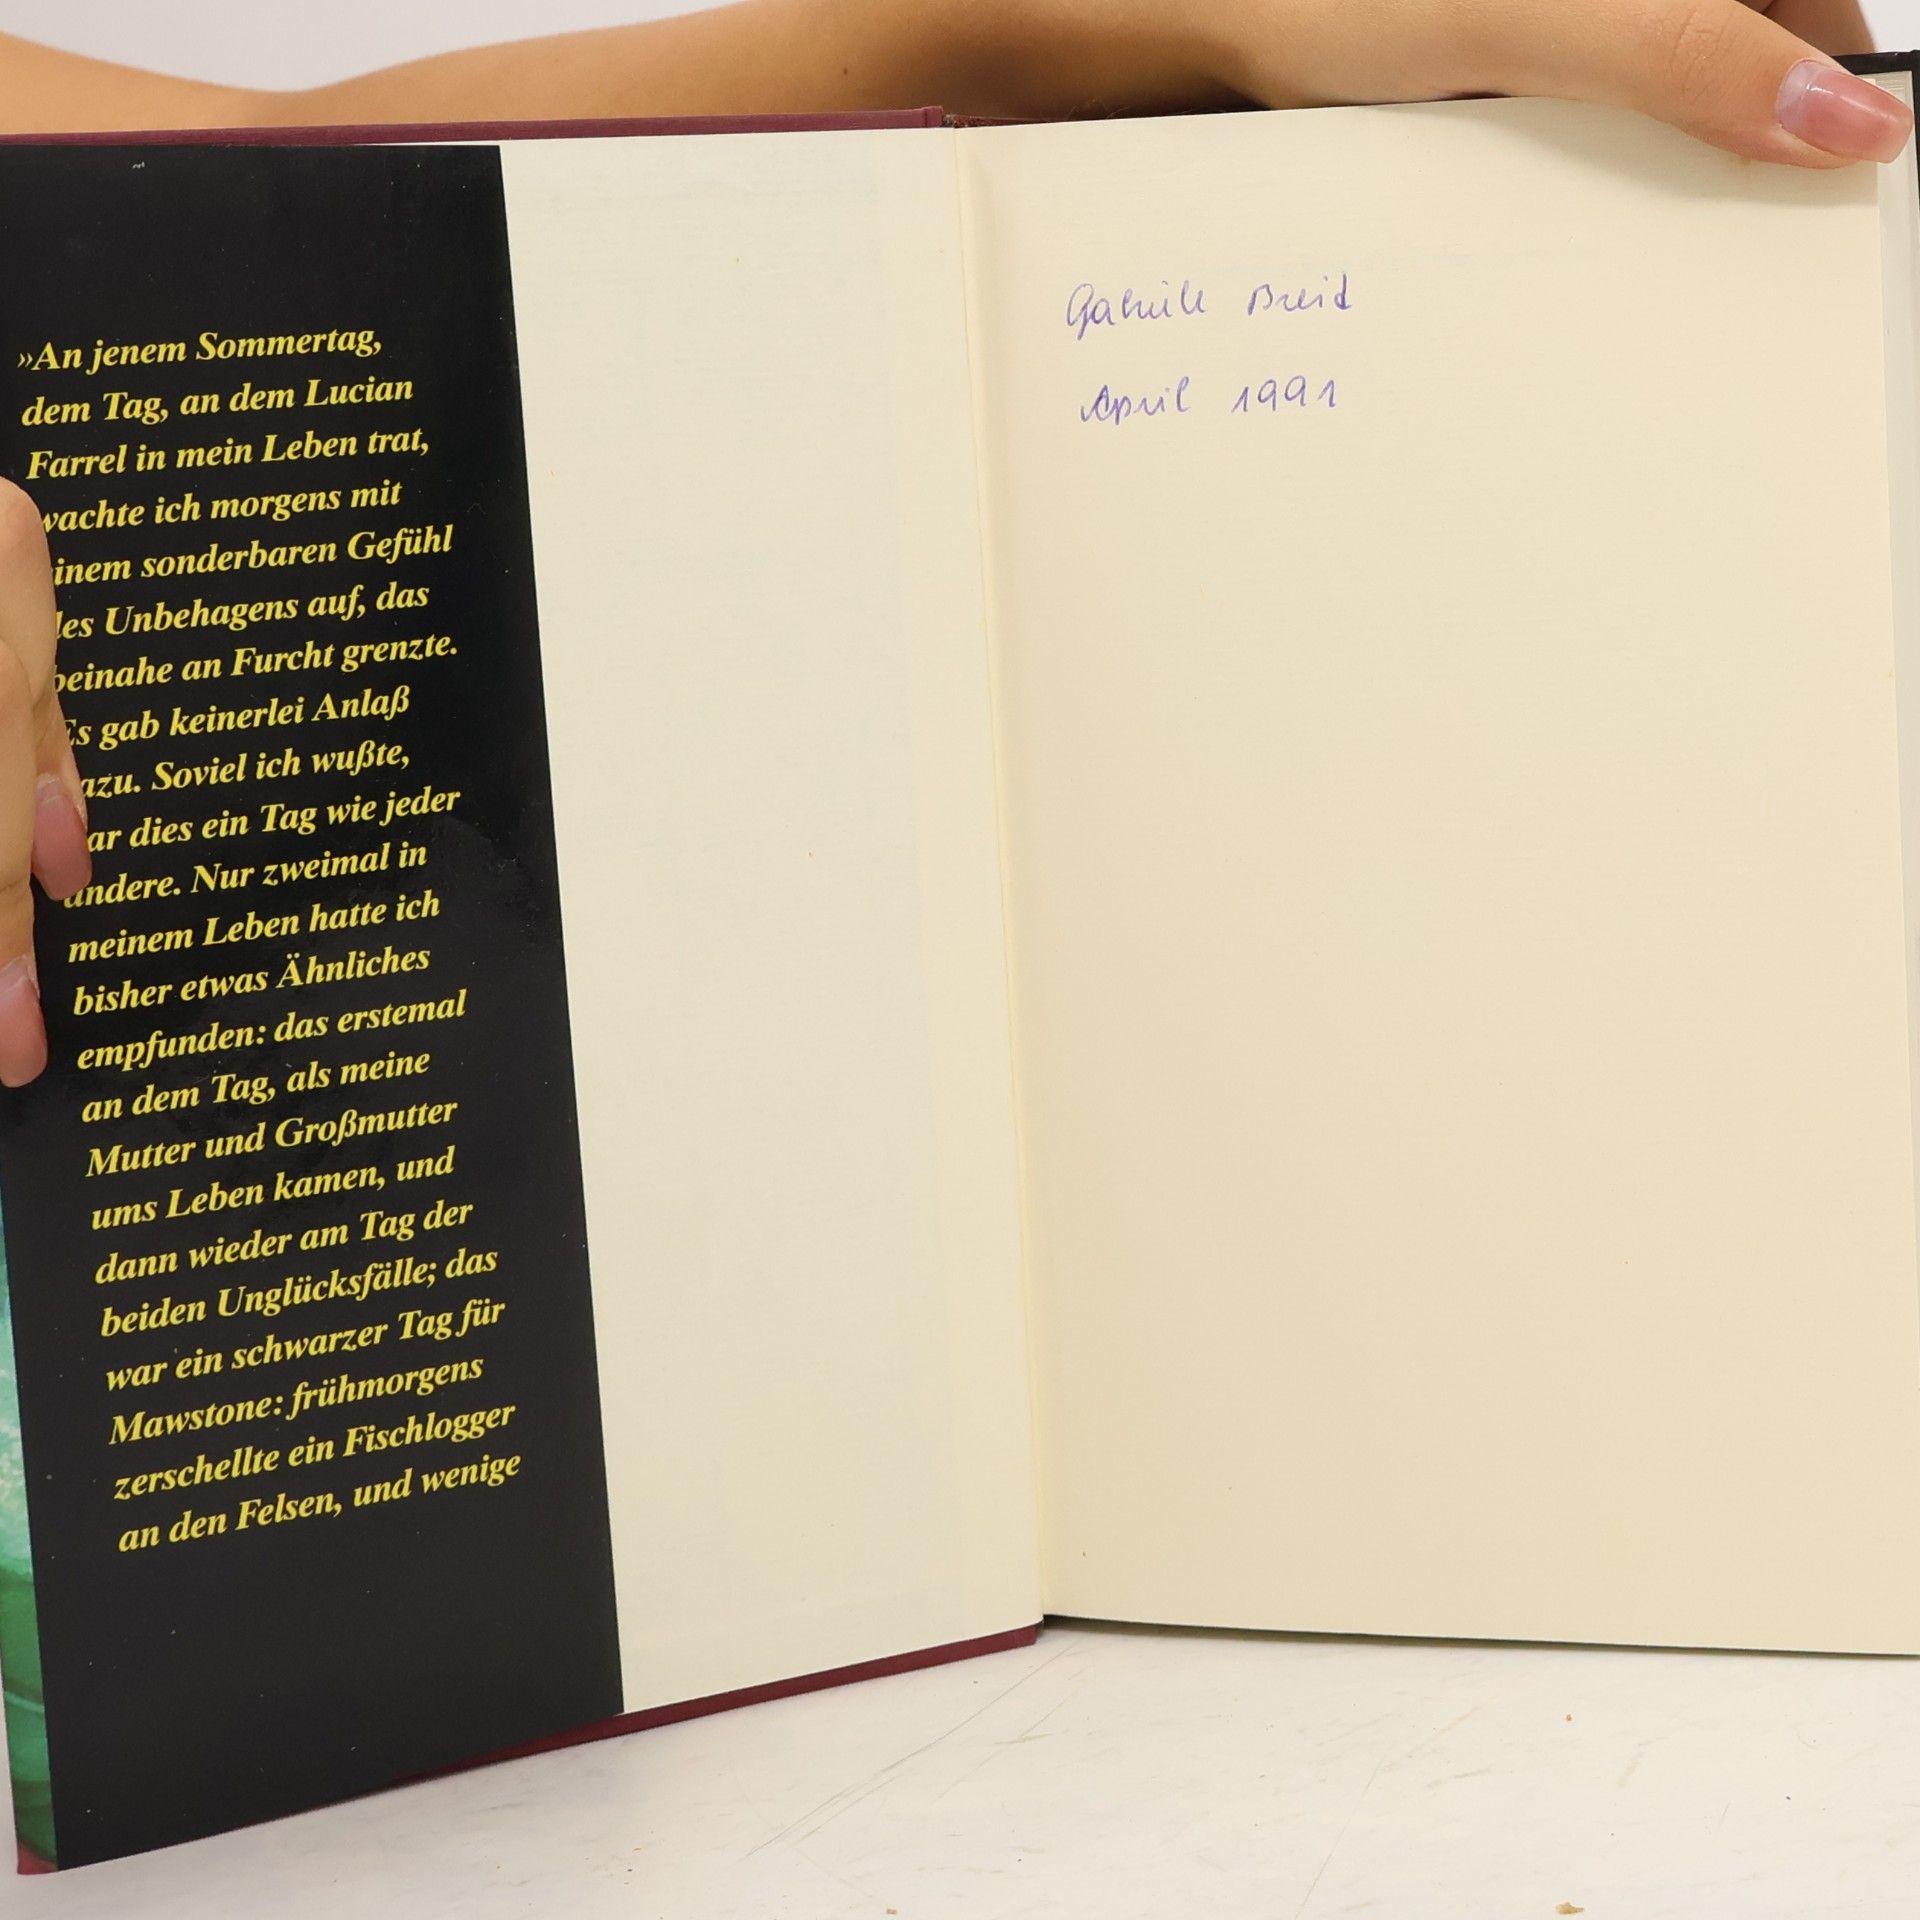 »An jenem Sommertag,
dem Tag, an dem Lucian
Farrel in mein Leben trat,
wachte ich morgens mit
einem sonderbaren Gefühl
des Unbehagens auf, das
beinahe an Furcht grenzte.
Es gab keinerlei Anlaß
dazu. Soviel ich wußte,
war dies ein Tag wie jeder
andere. Nur zweimal in
meinem Leben hatte ich
bisher etwas Ähnliches
empfunden: das erstemal
an dem Tag, als meine
Mutter und Großmutter
ums Leben kamen, und
dann wieder am Tag der
beiden Unglücksfälle; das
war ein schwarzer Tag für
Mawstone: frühmorgens
zerschellte ein Fischlogger
an den Felsen, und wenige
Gabriele Breid
April 1991